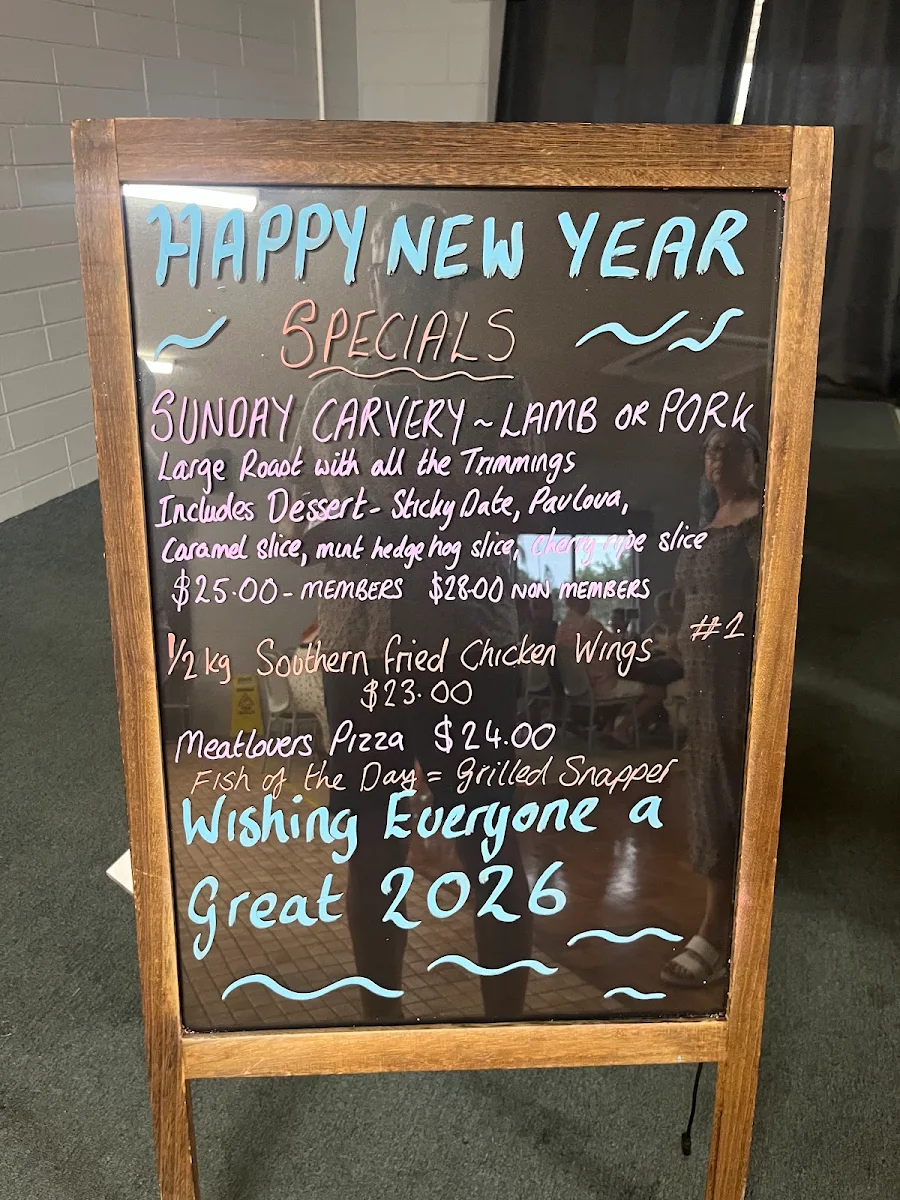 HAPPY NEW YEAR
SPECIALS
SUNDAY CARVERY ~ LAMB OR PORK
Large Roast with all the Trimmings
Includes Dessert - Sticky Date, Pavlova,
Caramel slice, mint hedgehog slice, cherry ripe slice
$25.00 - MEMBERS $28.00 NON MEMBERS
#1
1/2 kg Southern fried Chicken Wings
$23.00
Meatlovers Pizza $24.00
Fish of the Day = Grilled Snapper
Wishing Everyone a
Great 2026